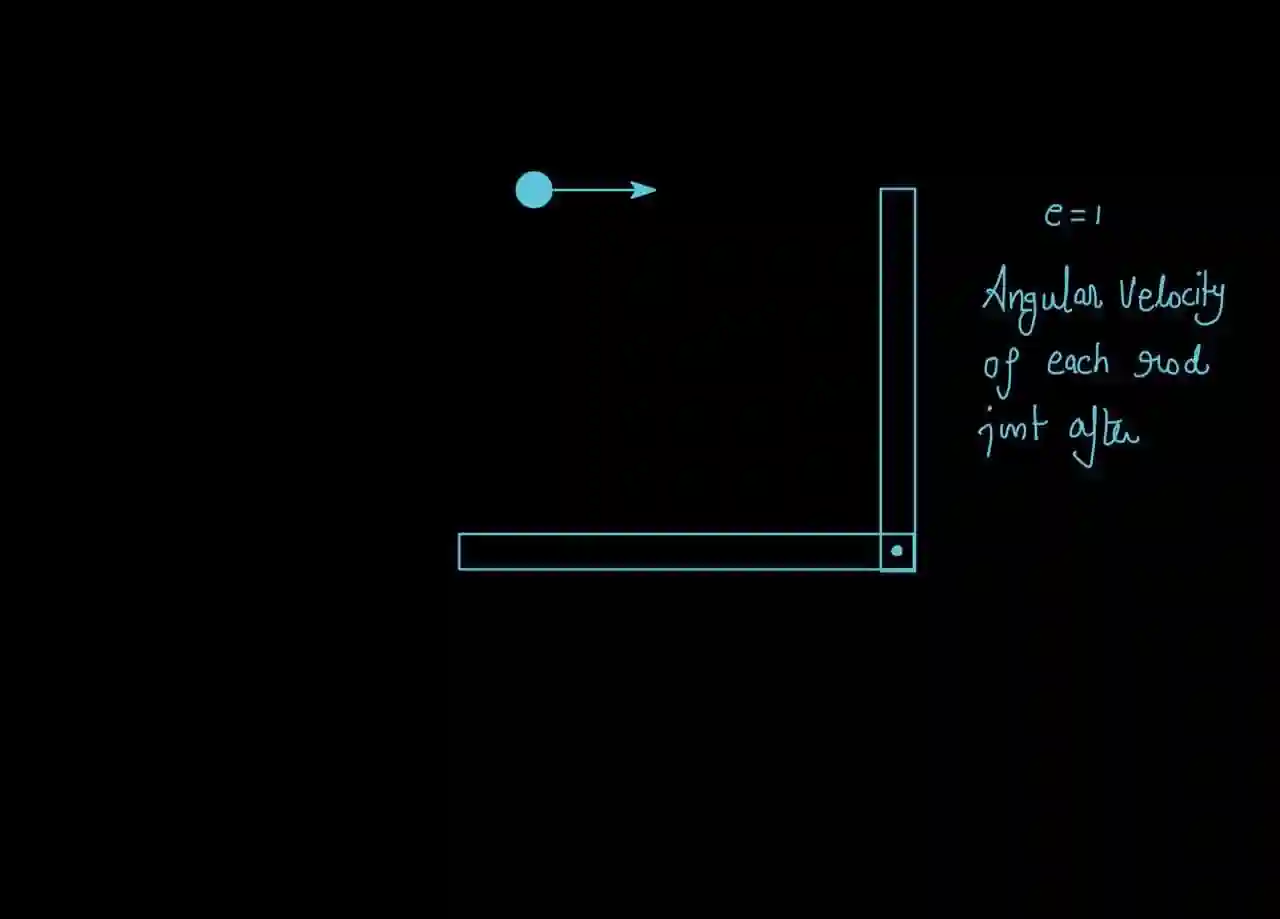 e = 1
Angular Velocity
of each rod
just after